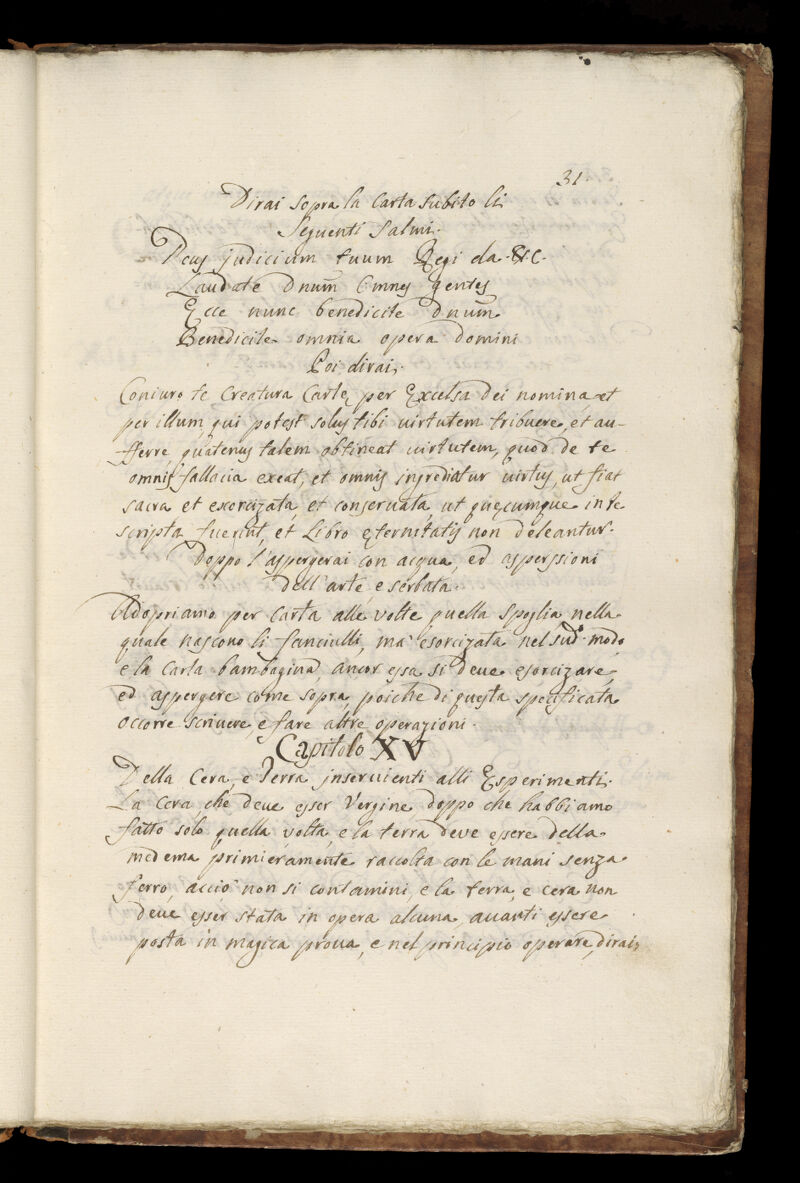 31.
Dirai sopra la Carta subito li
Seguenti Salmi.
Deus judicium tuum Regi da &c.
Laudate Dnum͂ Omnes gentes
Ecce nunc benedicite Dnum͂
Benedicite omnia opera Domini
Poi dirai.
Coniuro te Creatura Cartę per Excelsa Dei nomina et
per illum, qui potest solus tibi uirtutem tribuere, et au-
fferre quatenus talem obtineat uirtutem, quod de te
omnis fallacia exeat, et omnis ingrediatur uirtus, ut fiat
sacra et exorcizata, et conseruata, ut quęcumque in te
scripta fuerint, et Libro ęternitatis non deleantur.
Doppo l'aspergerai con acqua, ed asperssioni
dell'arte, e serbata.
Adopriamo per Carta alle volte quella spoglia nella
quale nascono li fanciulli, ma esorcizata nel sud.º modo
e la Carta bambagina, ancor essa si deve esorcizare,
ed aspergere come sopra, poiche di questa specificata
occorre scriuere e fare altre operazioni.
Capitolo XV
Della Cera, e Terra inseruienti alli Esperimenti.
La Cera che deve esser Vergine doppo che habbiamo
fatto solo quella volta, e la terra deve essere della
medema primieramente raccolta con le mani senza
ferro, acciò non si contamini e la terra, e cera non
deve esser stata in opera alcuna, auanti essere
posta in magica proua, e nel principio operare, dirai,